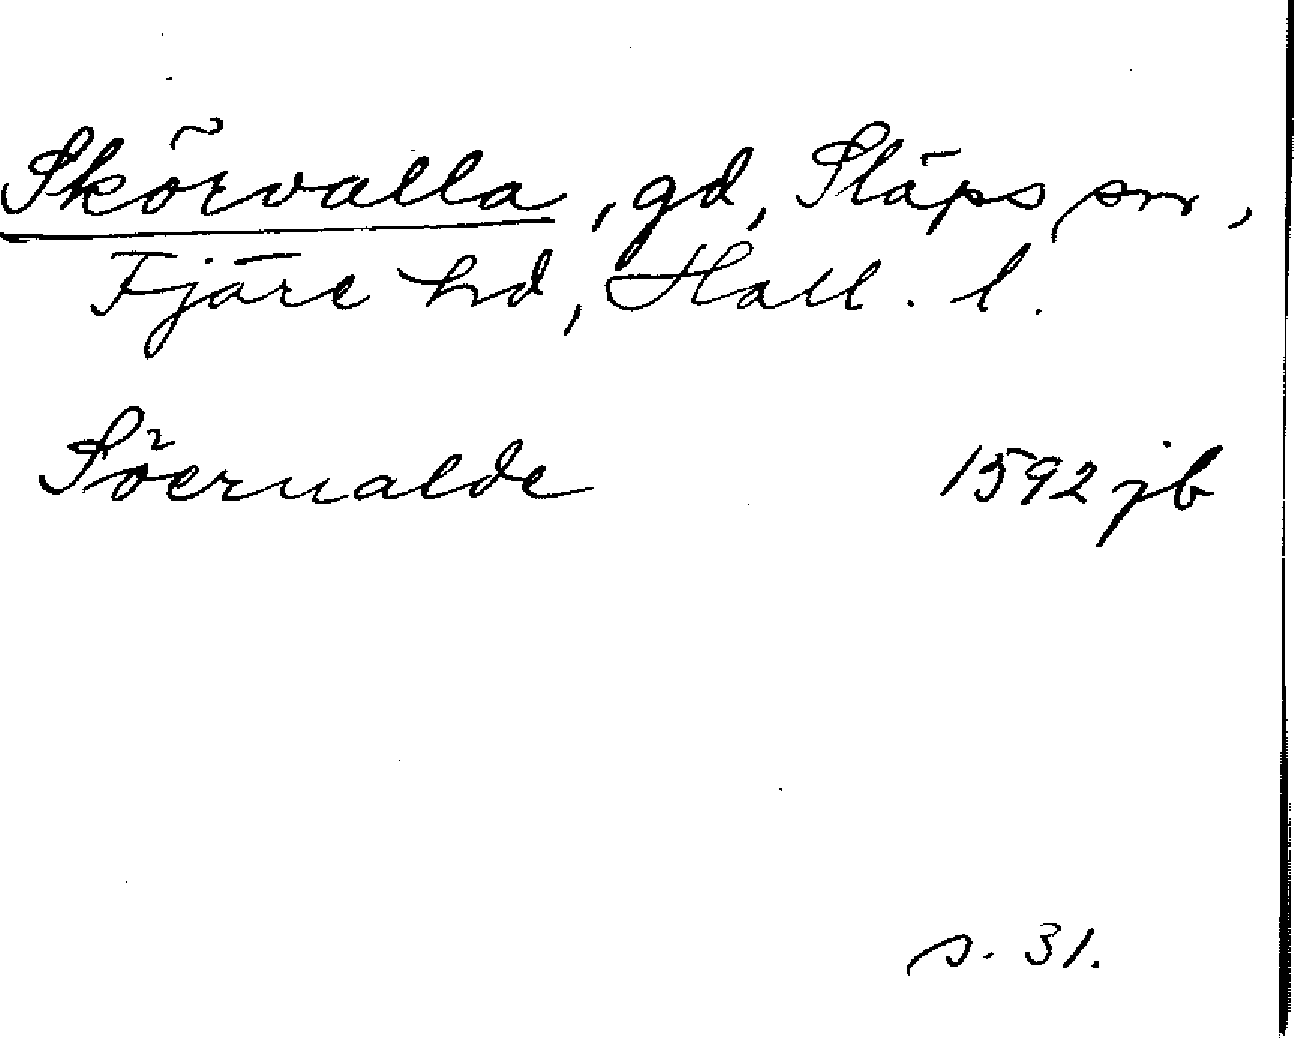 Skörvalla, gd, Släps sn,
Fjäre hd, Hall. l.
Söerualde 1592 jb
s. 31.